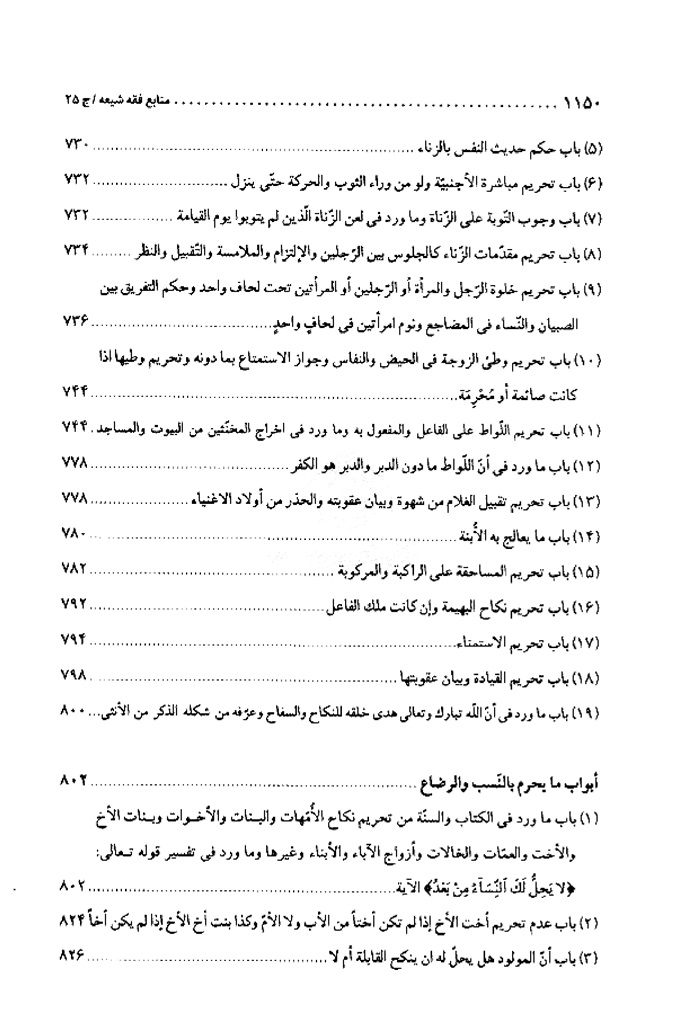 ۱۱۵۰ ................................................ منابع فقه شیعه / ج ۲۵
(۵) باب حکم حدیث النفس بالزناء ................................ ۷۳۰
(۶) باب تحریم مباشرة الأجنبیّة ولو من وراء الثوب والحرکة حتّی ینزل ................ ۷۳۲
(۷) باب وجوب التّوبة علی الزّناة وما ورد فی لعن الزّناة الّذین لم یتوبوا یوم القیامة ............ ۷۳۲
(۸) باب تحریم مقدّمات الزّناء کالجلوس بین الرّجلین والإلتزام والملامسة والتّقبیل والنظر ......... ۷۳۴
(۹) باب تحریم خلوة الرّجل والمرأة أو الرّجلین أو المرأتین تحت لحاف واحد وحکم التفریق بین
الصبیان والنّساء فی المضاجع ونوم امرأتین فی لحافٍ واحدٍ ........................ ۷۳۶
(۱۰) باب تحریم وطئ الزوجة فی الحیض والنفاس وجواز الاستمتاع بما دونه وتحریم وطیها اذا
کانت صائمة أو مُحْرِمَة ................................ ۷۴۴
(۱۱) باب تحریم اللّواط علی الفاعل والمفعول به وما ورد فی اخراج المخنّثین من البیوت والمساجد . ۷۴۴
(۱۲) باب ما ورد فی أنّ اللّواط ما دون الدبر والدبر هو الکفر ........................ ۷۷۸
(۱۳) باب تحریم تقبیل الغلام من شهوة وبیان عقوبته والحذر من أولاد الاغنیاء ............ ۷۷۸
(۱۴) باب ما یعالج به الأُبنة ................................ ۷۸۰
(۱۵) باب تحریم المساحقة علی الراکبة والمرکوبة ........................ ۷۸۲
(۱۶) باب تحریم نکاح البهیمة وإن کانت ملك الفاعل ........................ ۷۹۲
(۱۷) باب تحریم الاستمناء ................................ ۷۹۴
(۱۸) باب تحریم القیادة وبیان عقوبتها ................................ ۷۹۸
(۱۹) باب ما ورد فی أنّ اللّه تبارك وتعالی هدی خلقه للنکاح والسفاح وعرّفه من شکله الذکر من الأنثی ... ۸۰۰
أبواب ما یحرم بالنّسب والرضاع ................................ ۸۰۲
(۱) باب ما ورد فی الکتاب والسنّة من تحریم نکاح الأُمّهات والبنات والأخوات وبنات الأخ
والأخت والعمّات والخالات وأزواج الآباء والأبناء وغیرها وما ورد فی تفسیر قوله تعالی:
﴿لا یَحِلُّ لَكَ النِّسَآءُ مِنْ بَعْدُ﴾ الآیة ................................ ۸۰۲
(۲) باب عدم تحریم أخت الأخ إذا لم تکن أختاً من الأب ولا الأمّ وکذا بنت أخ الأخ إذا لم یکن أخاً ۸۲۴
(۳) باب أنّ المولود هل یحلّ له ان ینکح القابلة أم لا ................................ ۸۲۶